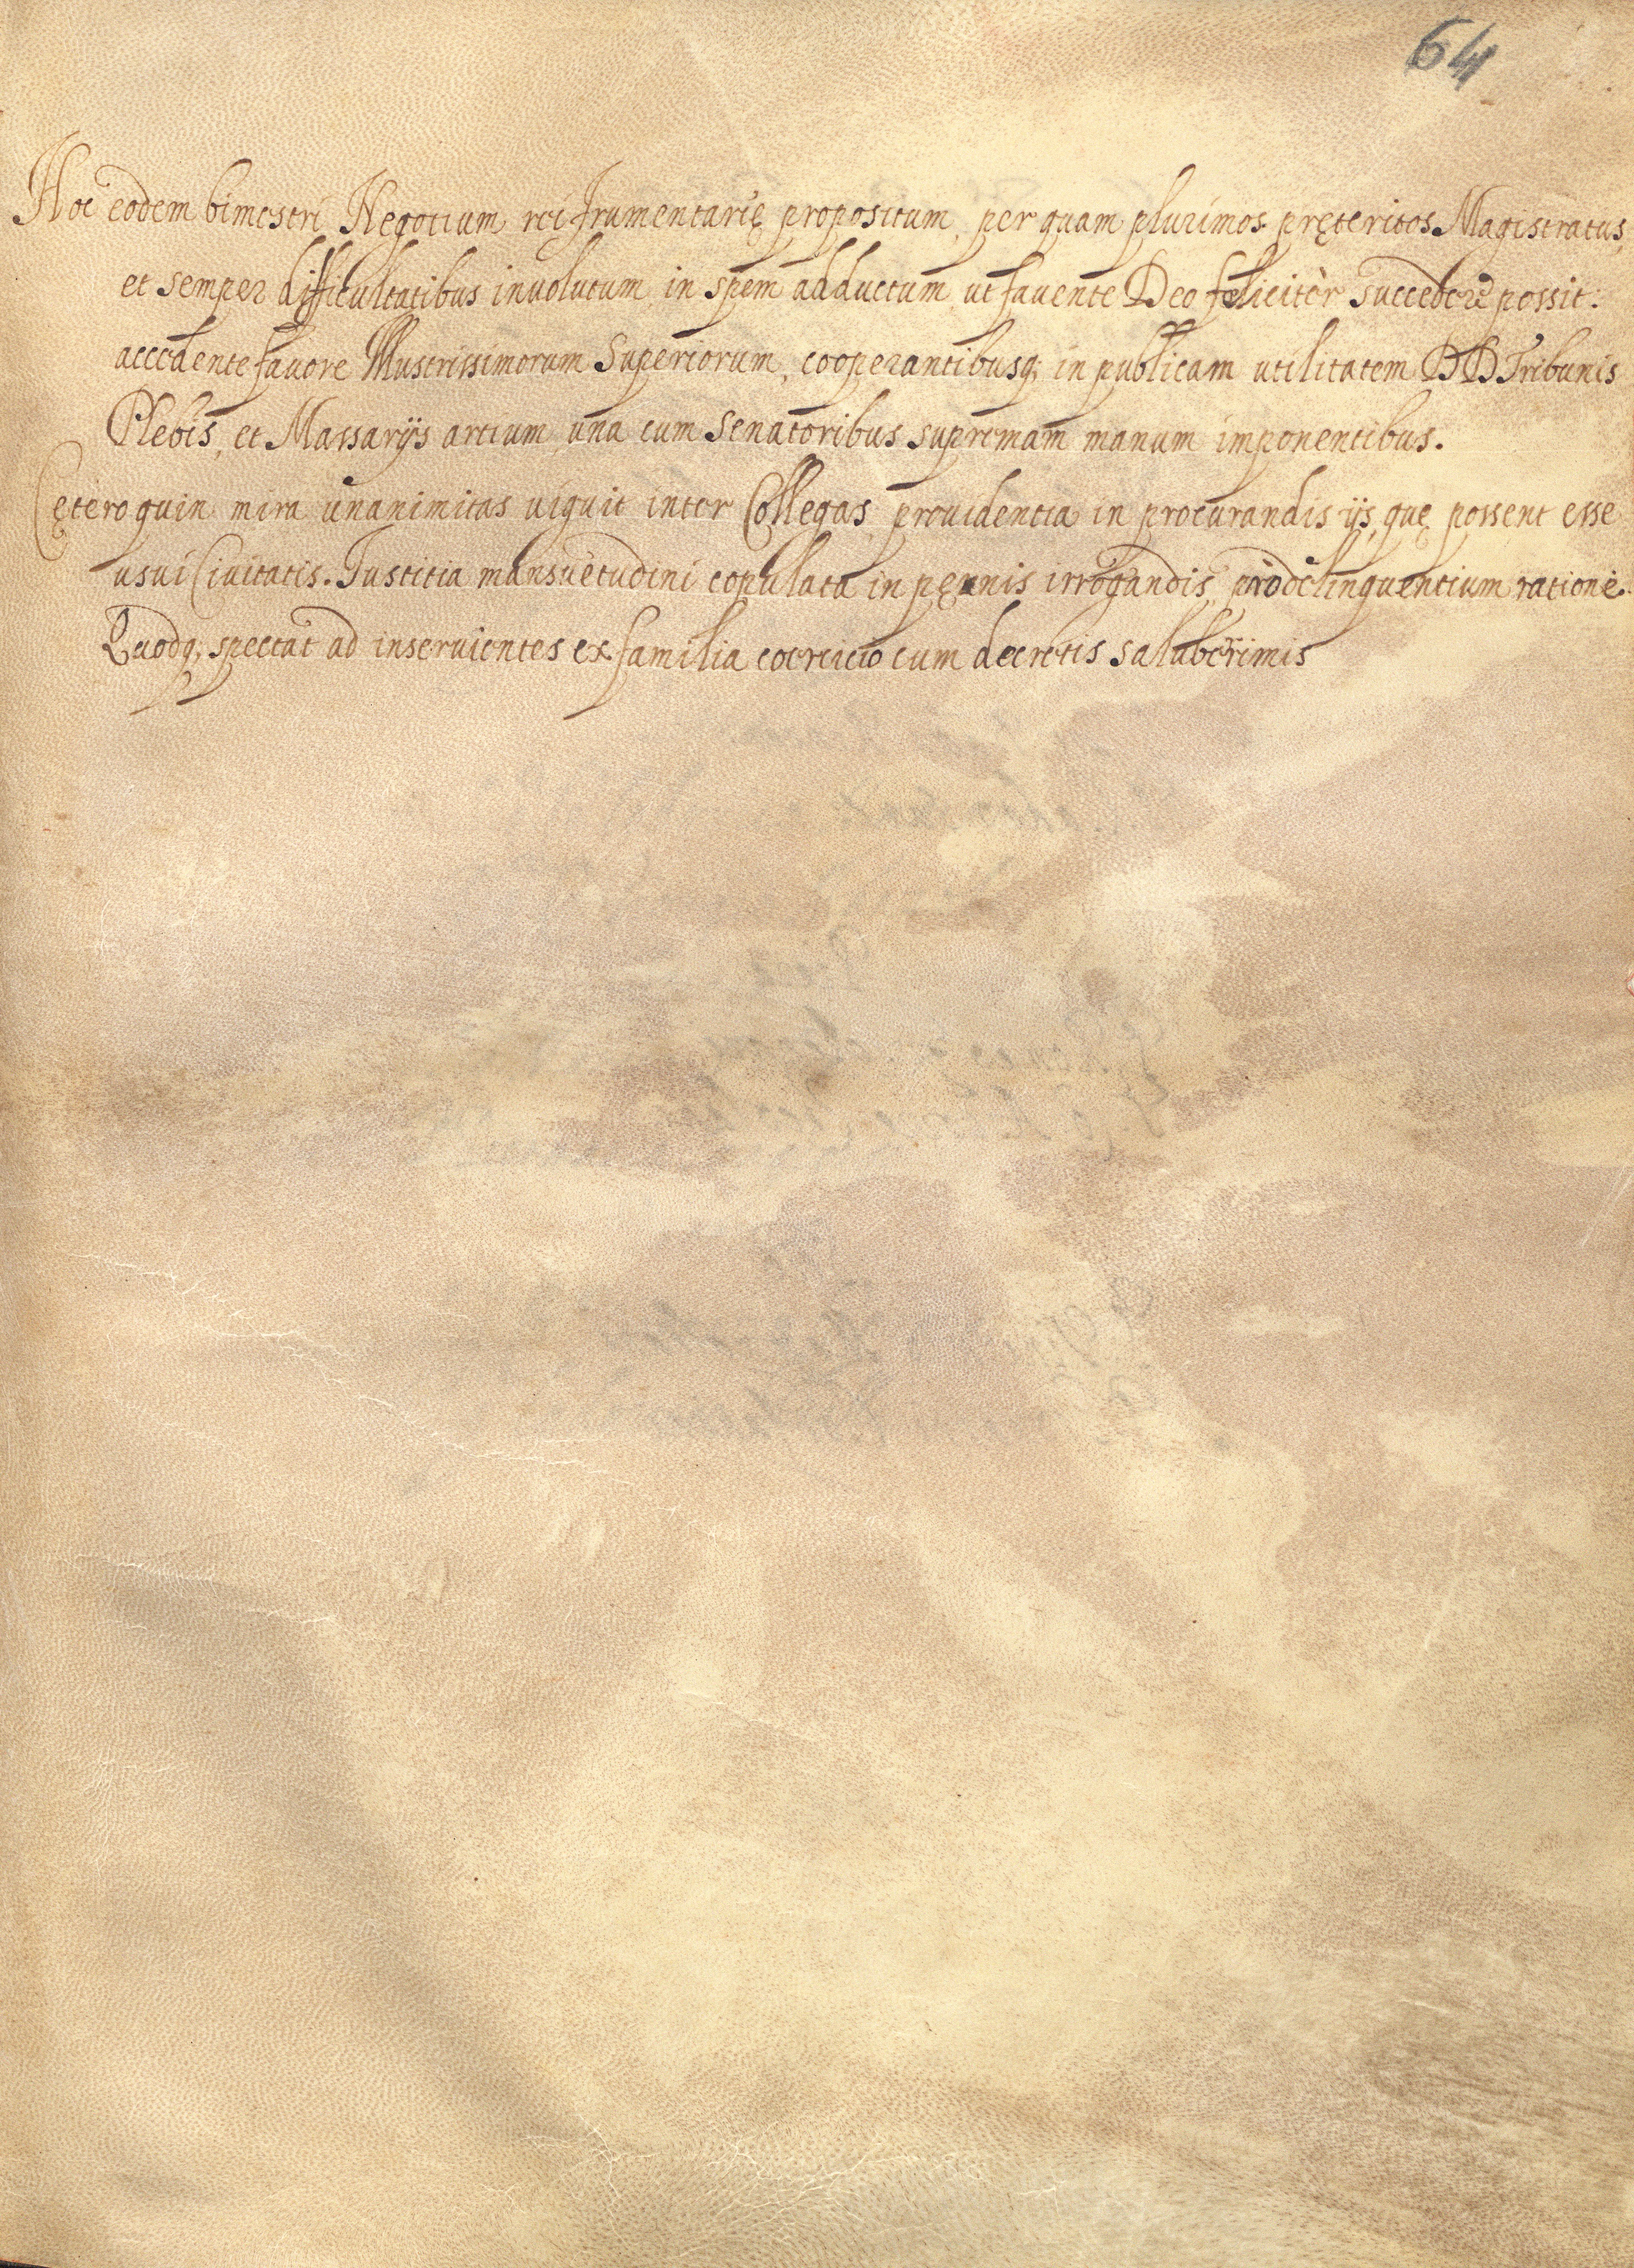 64
Hoc eodem bimestri Negotium rei frumentarię propositum, per quam plurimos pręteritos Magistratus,
et semper difficultatibus inuolutum in spem adductum, ut fauente Deo feliciter succedere possit:
accedente fauore Illustrissimorum Superiorum, cooperantibusq; in publicam utilitatem DD Tribunis
Plebis, et Massarijs artium una cum Senatoribus supremam manum imponentibus.
Cęteroquin mira unanimitas uiguit inter Collegas, prouidentia in procurandis ijs, quę possent esse
usui Ciuitatis. Iustitia mansuetudini copulata in pęnis irrogandis, pro delinquentium ratione.
Quodq; spectat ad inseruientes ex familia coercicio cum decretis saluberrimis